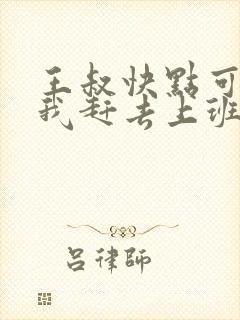 王叔快點可
我赶去上班
吕律師